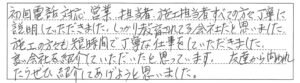 初回電話対応、営業、担当者、施工担当者すべての方が丁寧に
説明していただきました。しっかり教育されてる会社だと思いました。
施工の方も短時間で丁寧な仕事をしていただきました。
良い会社を紹介していただいたと思っています。友達から問われ
たらぜひ紹介してあげようと思いました。